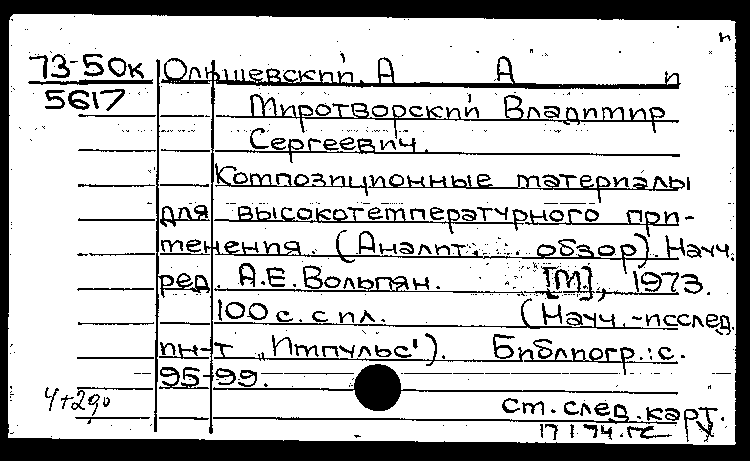 73-50к Ольшевский, А А и
5617 Миротворский Владимир
Сергеевич.
Композиционные материалы
для высокотемпературного при-
менения. (Аналит. обзор). Науч.
ред. А.Е. Вольпян. [М], 1973.
100 с. с ил. (Науч.-исслед.
ин-т „Импульс"). Библиогр.: с.
95-99.
4+2до
ст. след. карт.